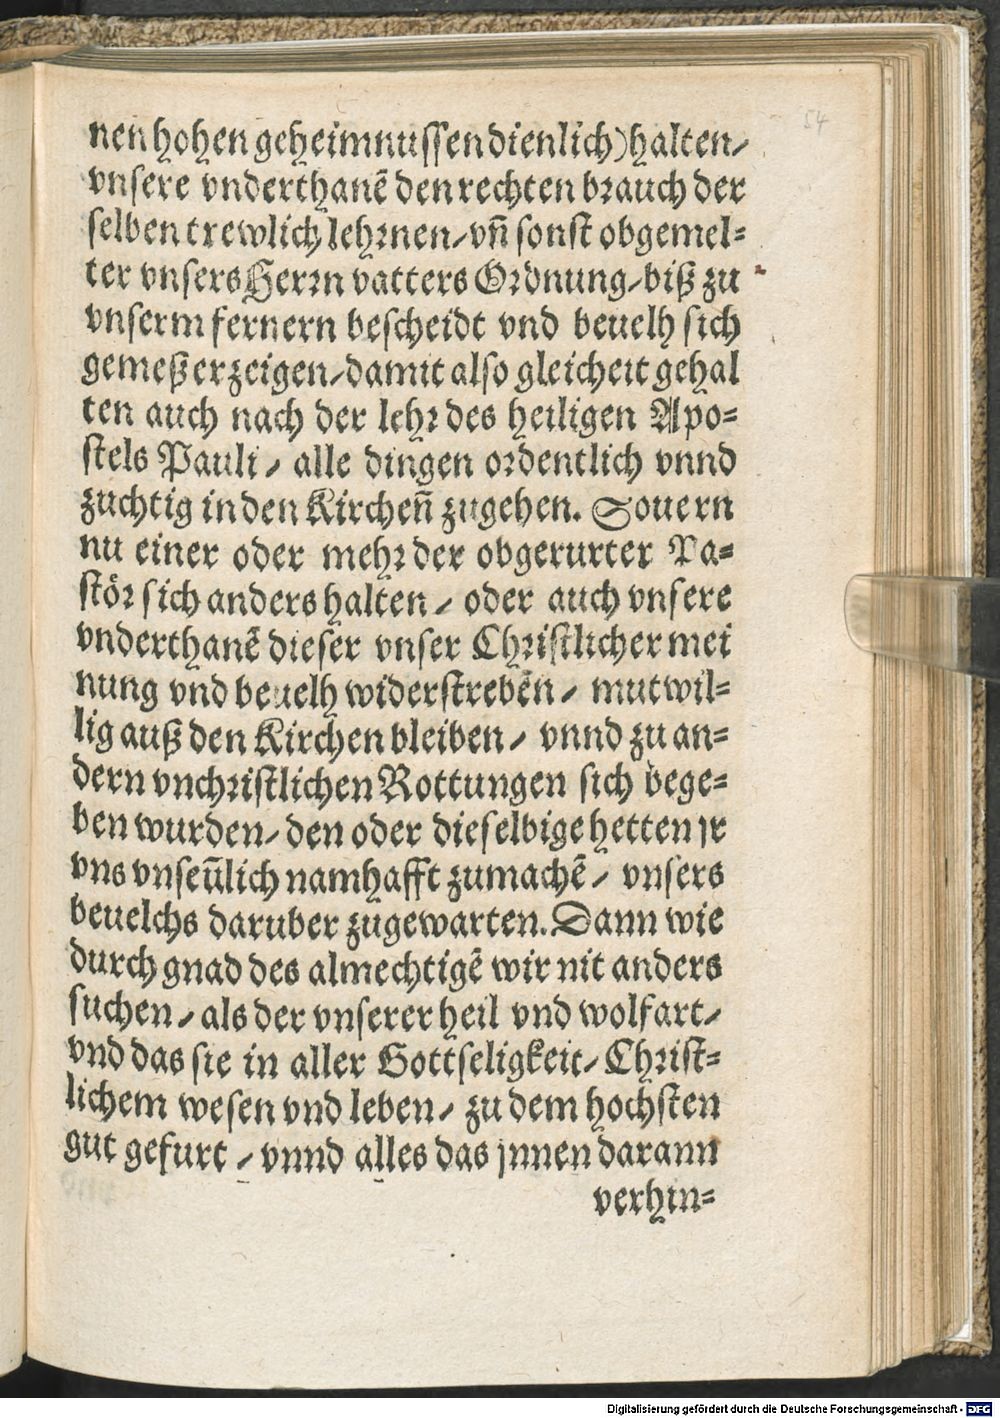 54
nen hohen geheimnussen dienlich) halten/
vnsere vnderthanē den rechten brauch der
selben trewlich lehrnen/ vn̄ sonst obgemel=
ter vnsers Herrn vatters Ordnung/ biß zu
vnserm fernern bescheidt vnd beuelh sich
gemeß erzeigen/ damit also gleicheit gehal
ten auch nach der lehr des heiligen Apo=
stels Pauli/ alle dingen ordentlich vnnd
zuchtig in den Kirchen̄ zugehen. Souern
nu einer oder mehr der obgerurter Pa=
stör sich anders halten/ oder auch vnsere
vnderthanē dieser vnser Christlicher mei
nung vnd beuelh widerstreben/ mutwil=
lig auß den Kirchen bleiben/ vnnd zu an=
dern vnchristlichen Rottungen sich bege=
ben wurden/ den oder dieselbige hetten jr
vns vnseūlich namhafft zumachē/ vnsers
beuelchs daruber zugewarten. Dann wie
durch gnad des almechtigē wir nit anders
suchen/ als der vnserer heil vnd wolfart/
vnd das sie in aller Gottseligkeit/ Christ=
lichem wesen vnd leben/ zu dem hochsten
gut gefurt/ vnnd alles das jnnen darann
verhin=
Digitalisierung gefördert durch die Deutsche Forschungsgemeinschaft - DFG